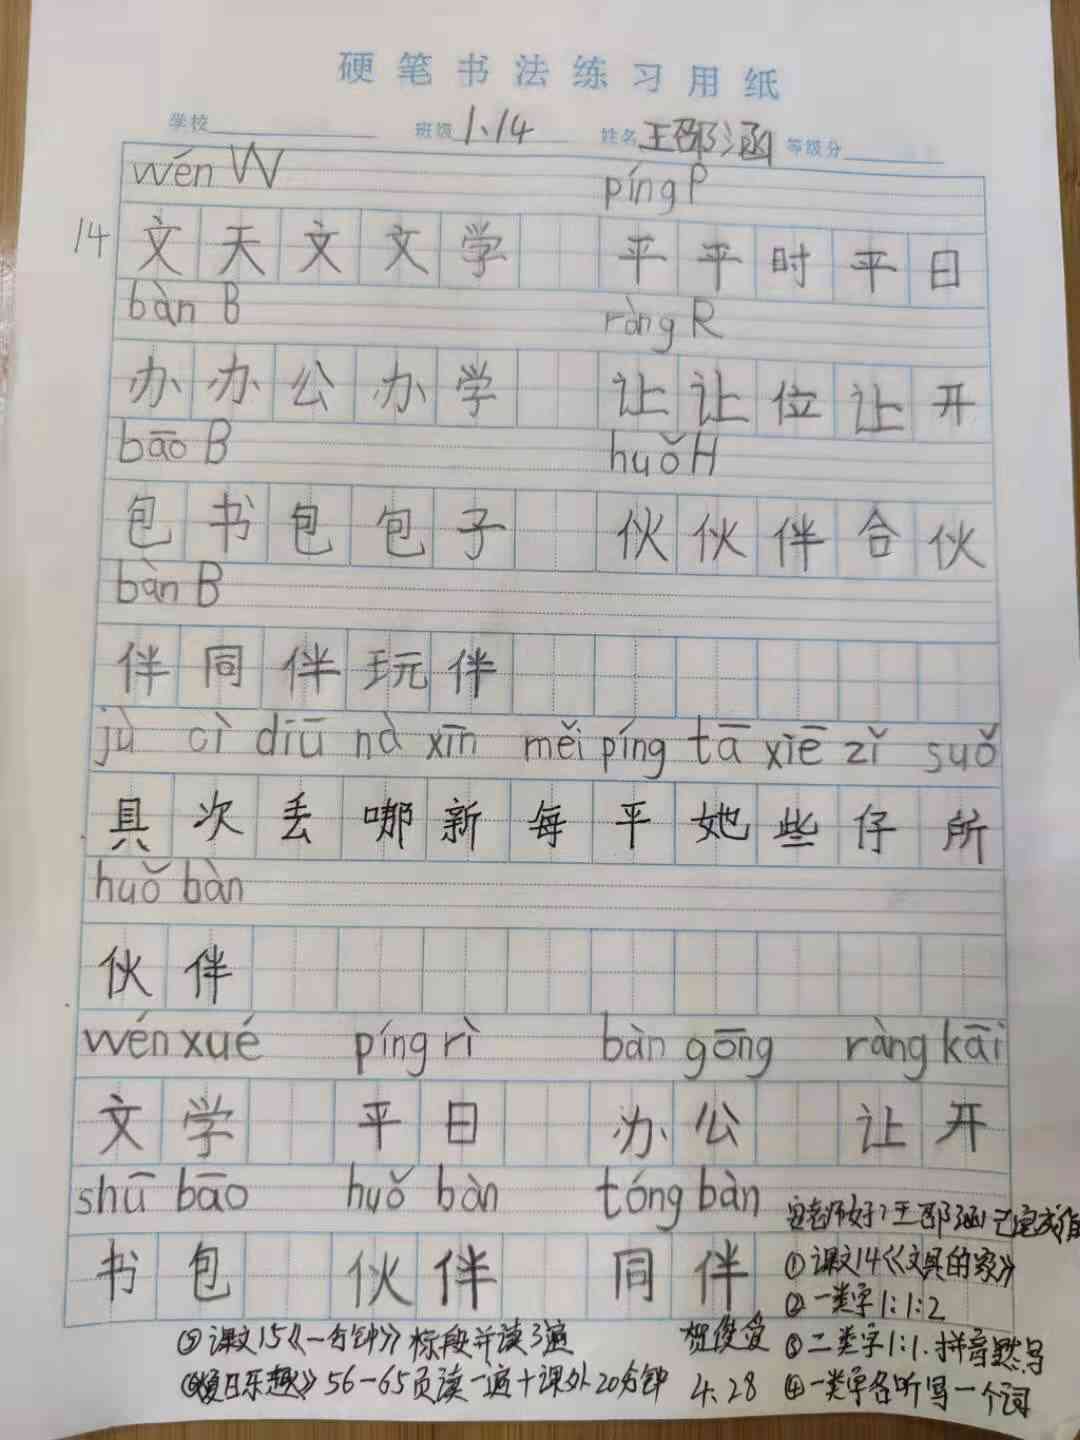 硬笔书法练习用纸
学校 班级 1、14 姓名 王邵涵 等级分
wén W píng P
14 文天文文学 平平时平日
bàn B ràng R
办办公办学 让让位让开
bāo B huǒ H
包书包包子 伙伙伴合伙
bàn B
伴同伴玩伴
jù cì diū nǎ xīn měi píng tā xiē zǐ suǒ
具次丢哪新每平她些仔所
huǒ bàn
伙伴
wén xué píng rì bàn gōng ràng kāi
文学 平日 办公 让开
shū bāo huǒ bàn tóng bàn
书包 伙伴 同伴
老师好!王邵涵已完成作
①课文14《文具的家》
②一类字1:1:2
③二类字1:1.拼音默写
④一类字各听写一个词
⑤课文15《一分钟》标段并读3遍
⑥《夏日乐趣》56-65页读一遍+课外20分钟
贺俊爱
4.28